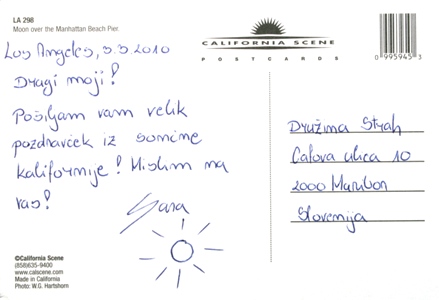 LA 298
Moon over the Manhattan Beach Pier.
CALIFORNIA SCENE
POSTCARDS
0 995945 3
Los Angeles, 3.3 2010
Dragi moji!
Pošiljam vam velik
pozdravček iz sončne
kalifornije! Mislim na
vas!
Sara
Družina Strah
Cafova ulica 10
2000 Maribor
Slovenija
©California Scene
(858)635-9400
www.calscene.com
Made in California
Photo: W.G. Hartshorn